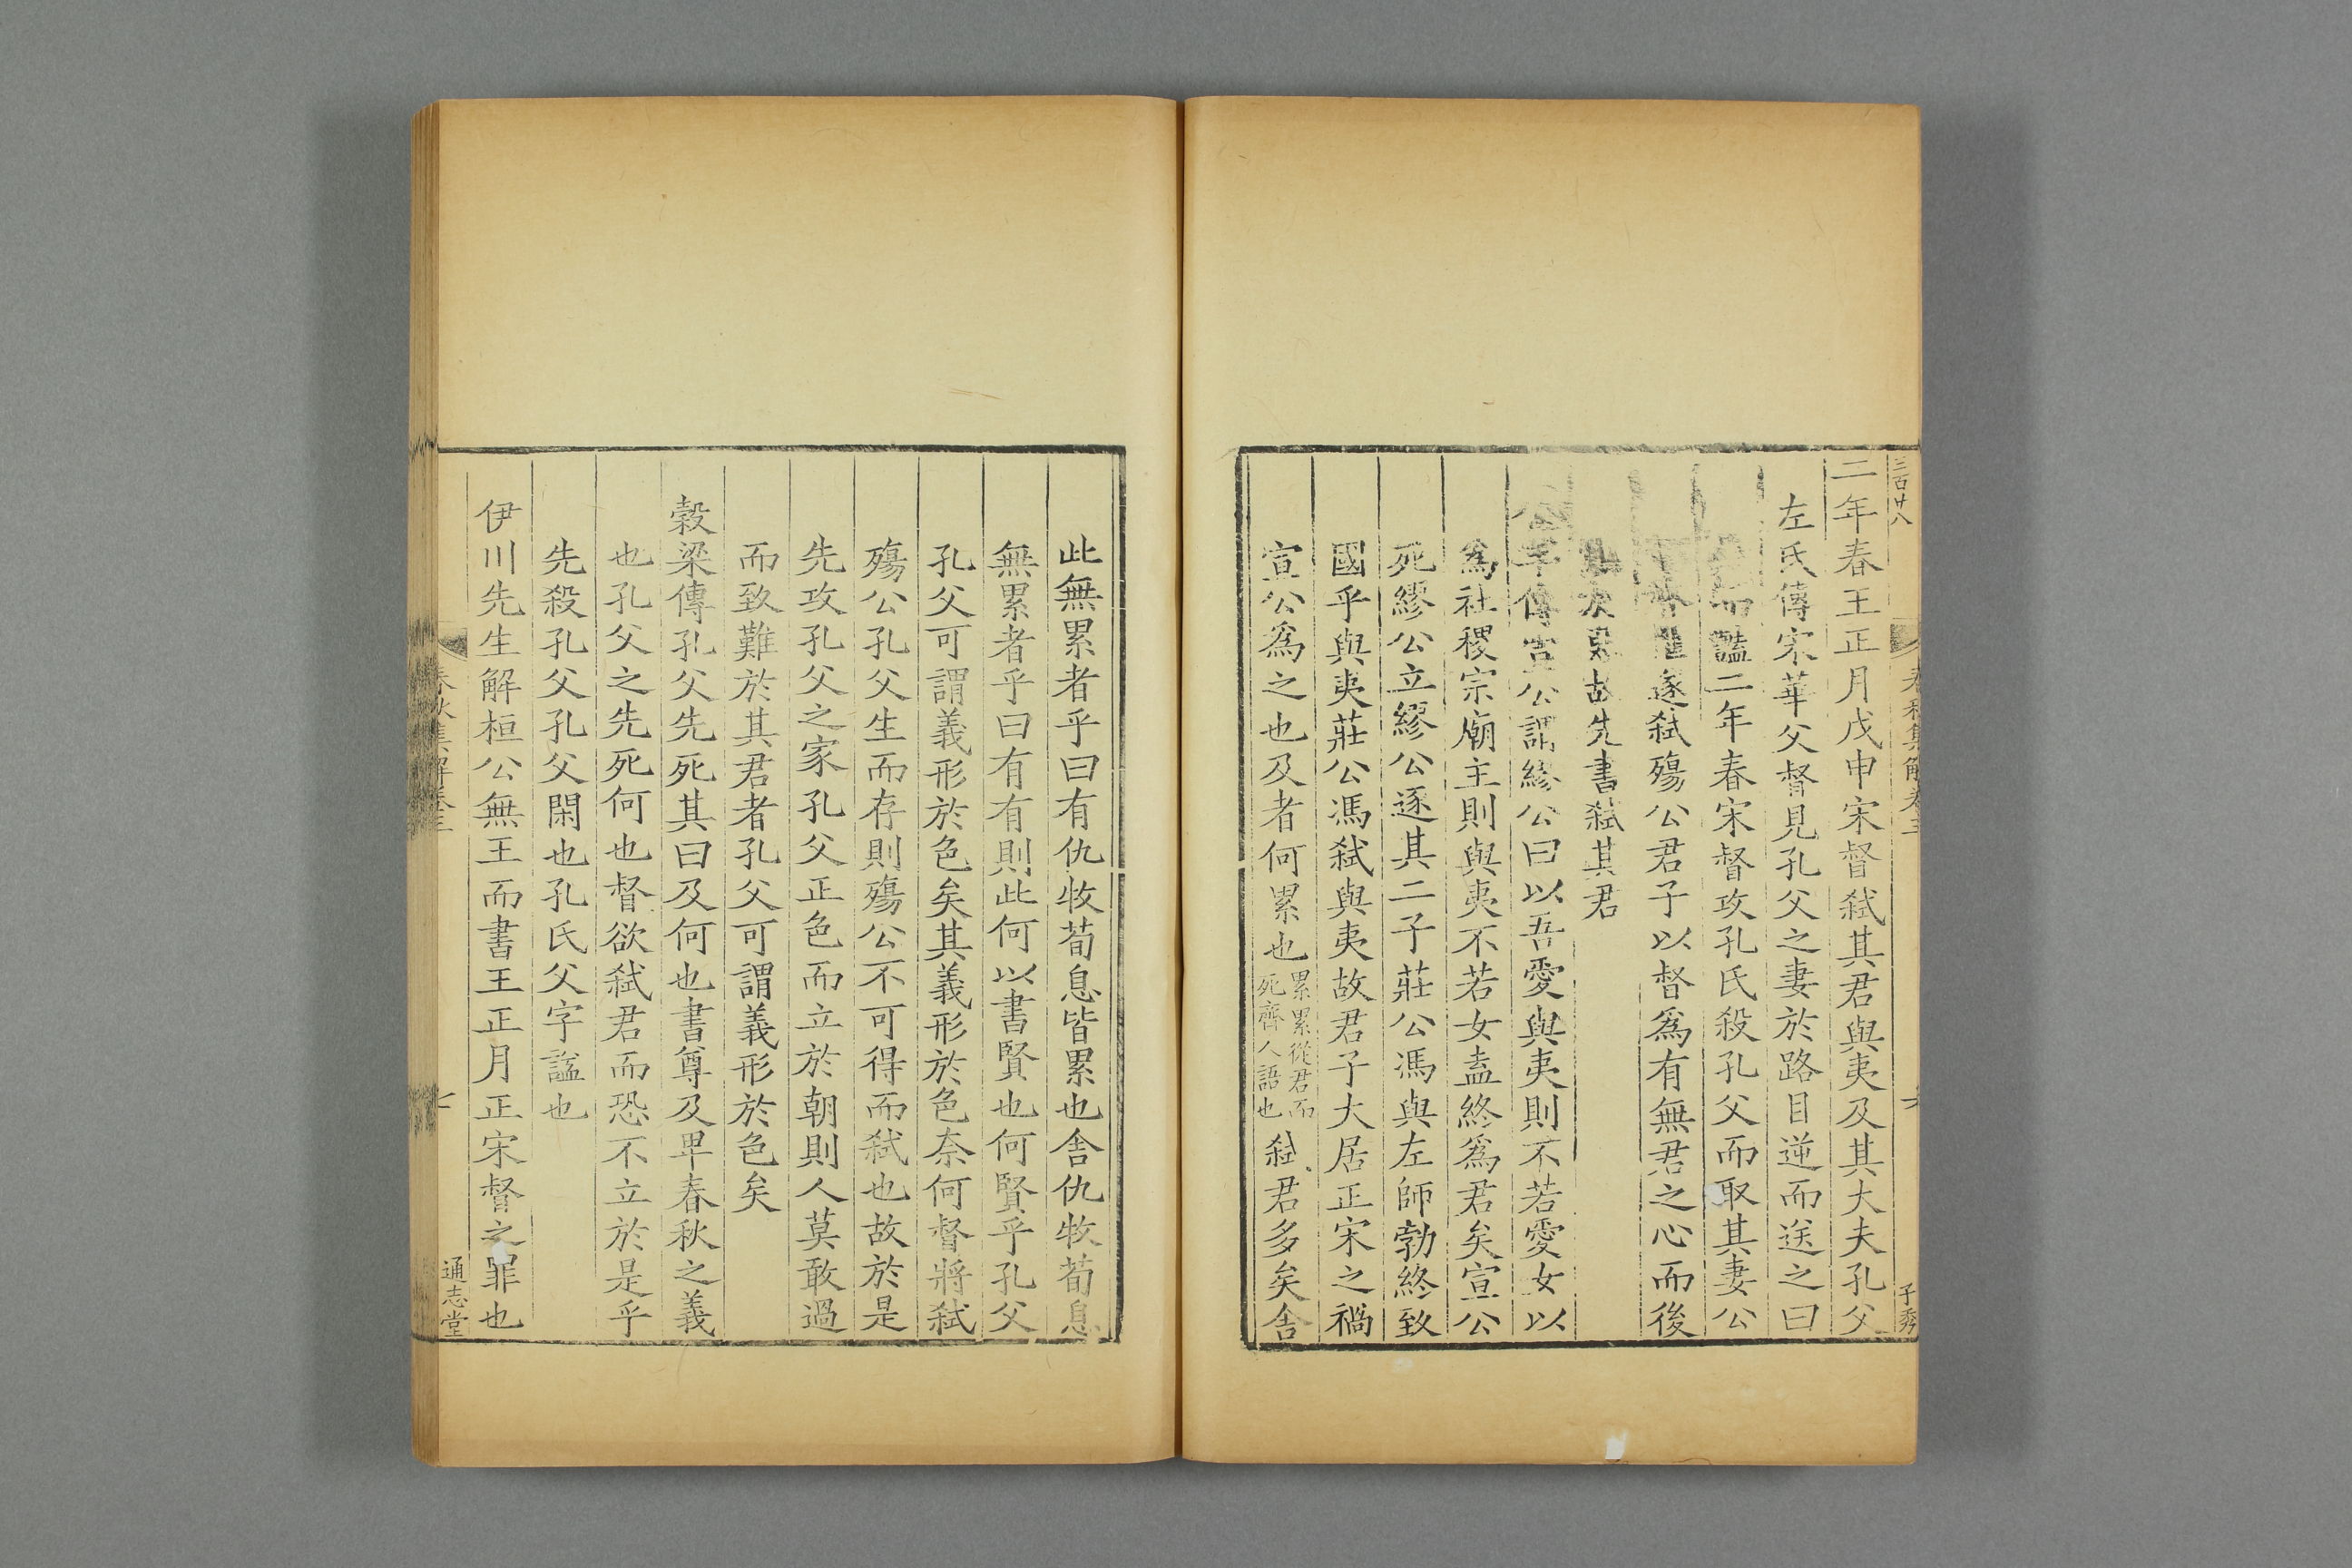 二年春王正月戊申宋督弑其君與夷及其大夫孔父
左氏傳宋華父督見孔父之妻於路目逆而送之曰
而豔二年春宋督攻孔氏殺孔父而取其妻公
遂弑殤公君子以督爲有無君之心而後
故先書弑其君
公羊傳宣公謂繆公曰以吾愛與夷則不若愛女以
爲社稷宗廟主則與夷不若女盍終爲君矣宣公
死繆公立繆公逐其二子莊公馮與左師勃終致
國乎與夷莊公馮弑與夷故君子大居正宋之禍
宣公爲之也及者何累也累累從君而死齊人語也弑君多矣舍
子秀
此無累者乎曰有仇牧荀息皆累也舍仇牧荀息
無累者乎曰有有則此何以書賢也何賢乎孔父
孔父可謂義形於色矣其義形於色奈何督將弑
殤公孔父生而存則殤公不可得而弑也故於是
先攻孔父之家孔父正色而立於朝則人莫敢過
而致難於其君者孔父可謂義形於色矣
穀梁傳孔父先死其曰及何也書尊及卑春秋之義
也孔父之先死何也督欲弑君而恐不立於是乎
先殺孔父孔父閑也孔氏父字諡也
伊川先生解桓公無王而書王正月正宋督之罪也
春秋集解卷三
通志堂